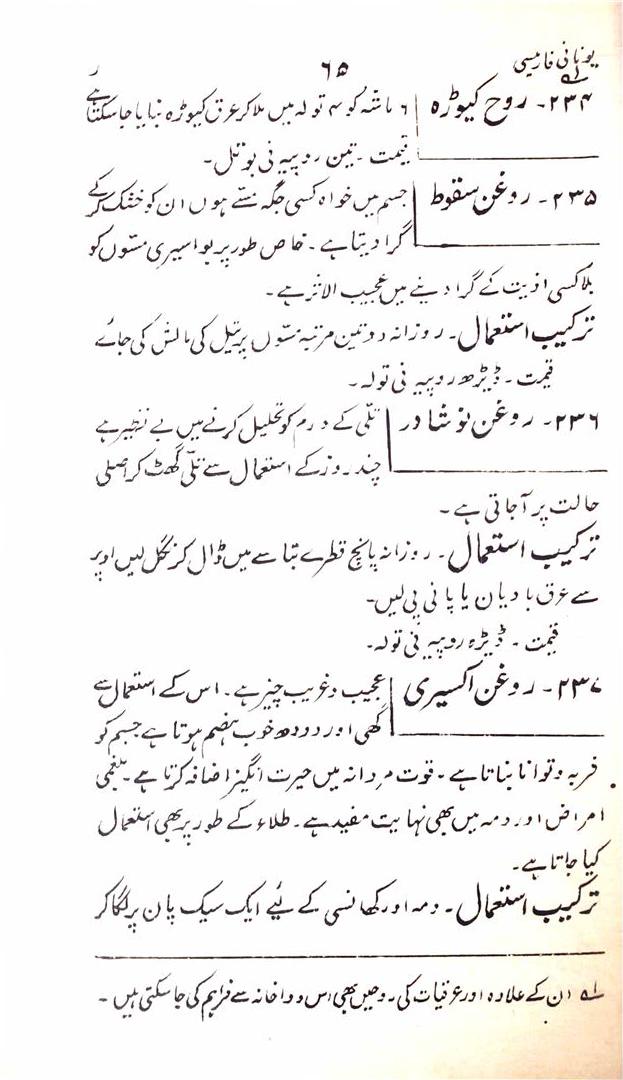 یونانی فارمیسی ۶۵ ر
۲۳۴۔ روح کیوڑہ ؎۱ ۶ ماشہ کو ۴ تولہ میں ملاکر عرق کیوڑہ بنایا جاسکتا ہے
قیمت ۔ تین روپیہ فی بوتل۔
۲۳۵۔ روغن سقوط جسم میں خواہ کسی جگہ مسّے ہوں ان کو خشک کرکے
گرا دیتا ہے ۔ خاص طور پر بواسیری مسّوں کو
بلا کسی اذیت کے گرا دینے میں عجیب الاثر ہے ۔
ترکیب استعمال ۔ روزانہ دو تین مرتبہ مسّوں پر تیل کی مالش کی جائے
قیمت ۔ ڈیڑھ روپیہ فی تولہ ۔
۲۳۶۔ روغن نوشادر تلّی کے ورم کو تحلیل کرنے میں بے نظیر ہے
چند روز کے استعمال سے تلّی گھٹ کر اصلی
حالت پر آجاتی ہے ۔
ترکیب استعمال ۔ روزانہ پانچ قطرے بتاسے میں ڈال کر نگل لیں اوپر
سے عرق بادیان یا پانی پی لیں۔
قیمت ۔ ڈیڑھ روپیہ فی تولہ۔
۲۳۷۔ روغن اکسیری عجیب و غریب چیز ہے ۔ اس کے استعمال سے
گھی اور دودھ خوب ہضم ہوتا ہے جسم کو
فربہ و توانا بناتا ہے ۔ قوت مردانہ میں حیرت انگیز اضافہ کرتا ہے ۔ بلغمی
امراض اور دمہ میں بھی نہایت مفید ہے ۔ طلاء کے طور پر بھی استعمال
کیا جاتا ہے ۔
ترکیب استعمال ۔ دمہ اور کھانسی کے لئے ایک سیک پان پر لگاکر
؎۱ ان کے علاوہ اور عرقیات کی روحیں بھی اس دواخانہ سے فراہم کی جاسکتی ہیں ۔